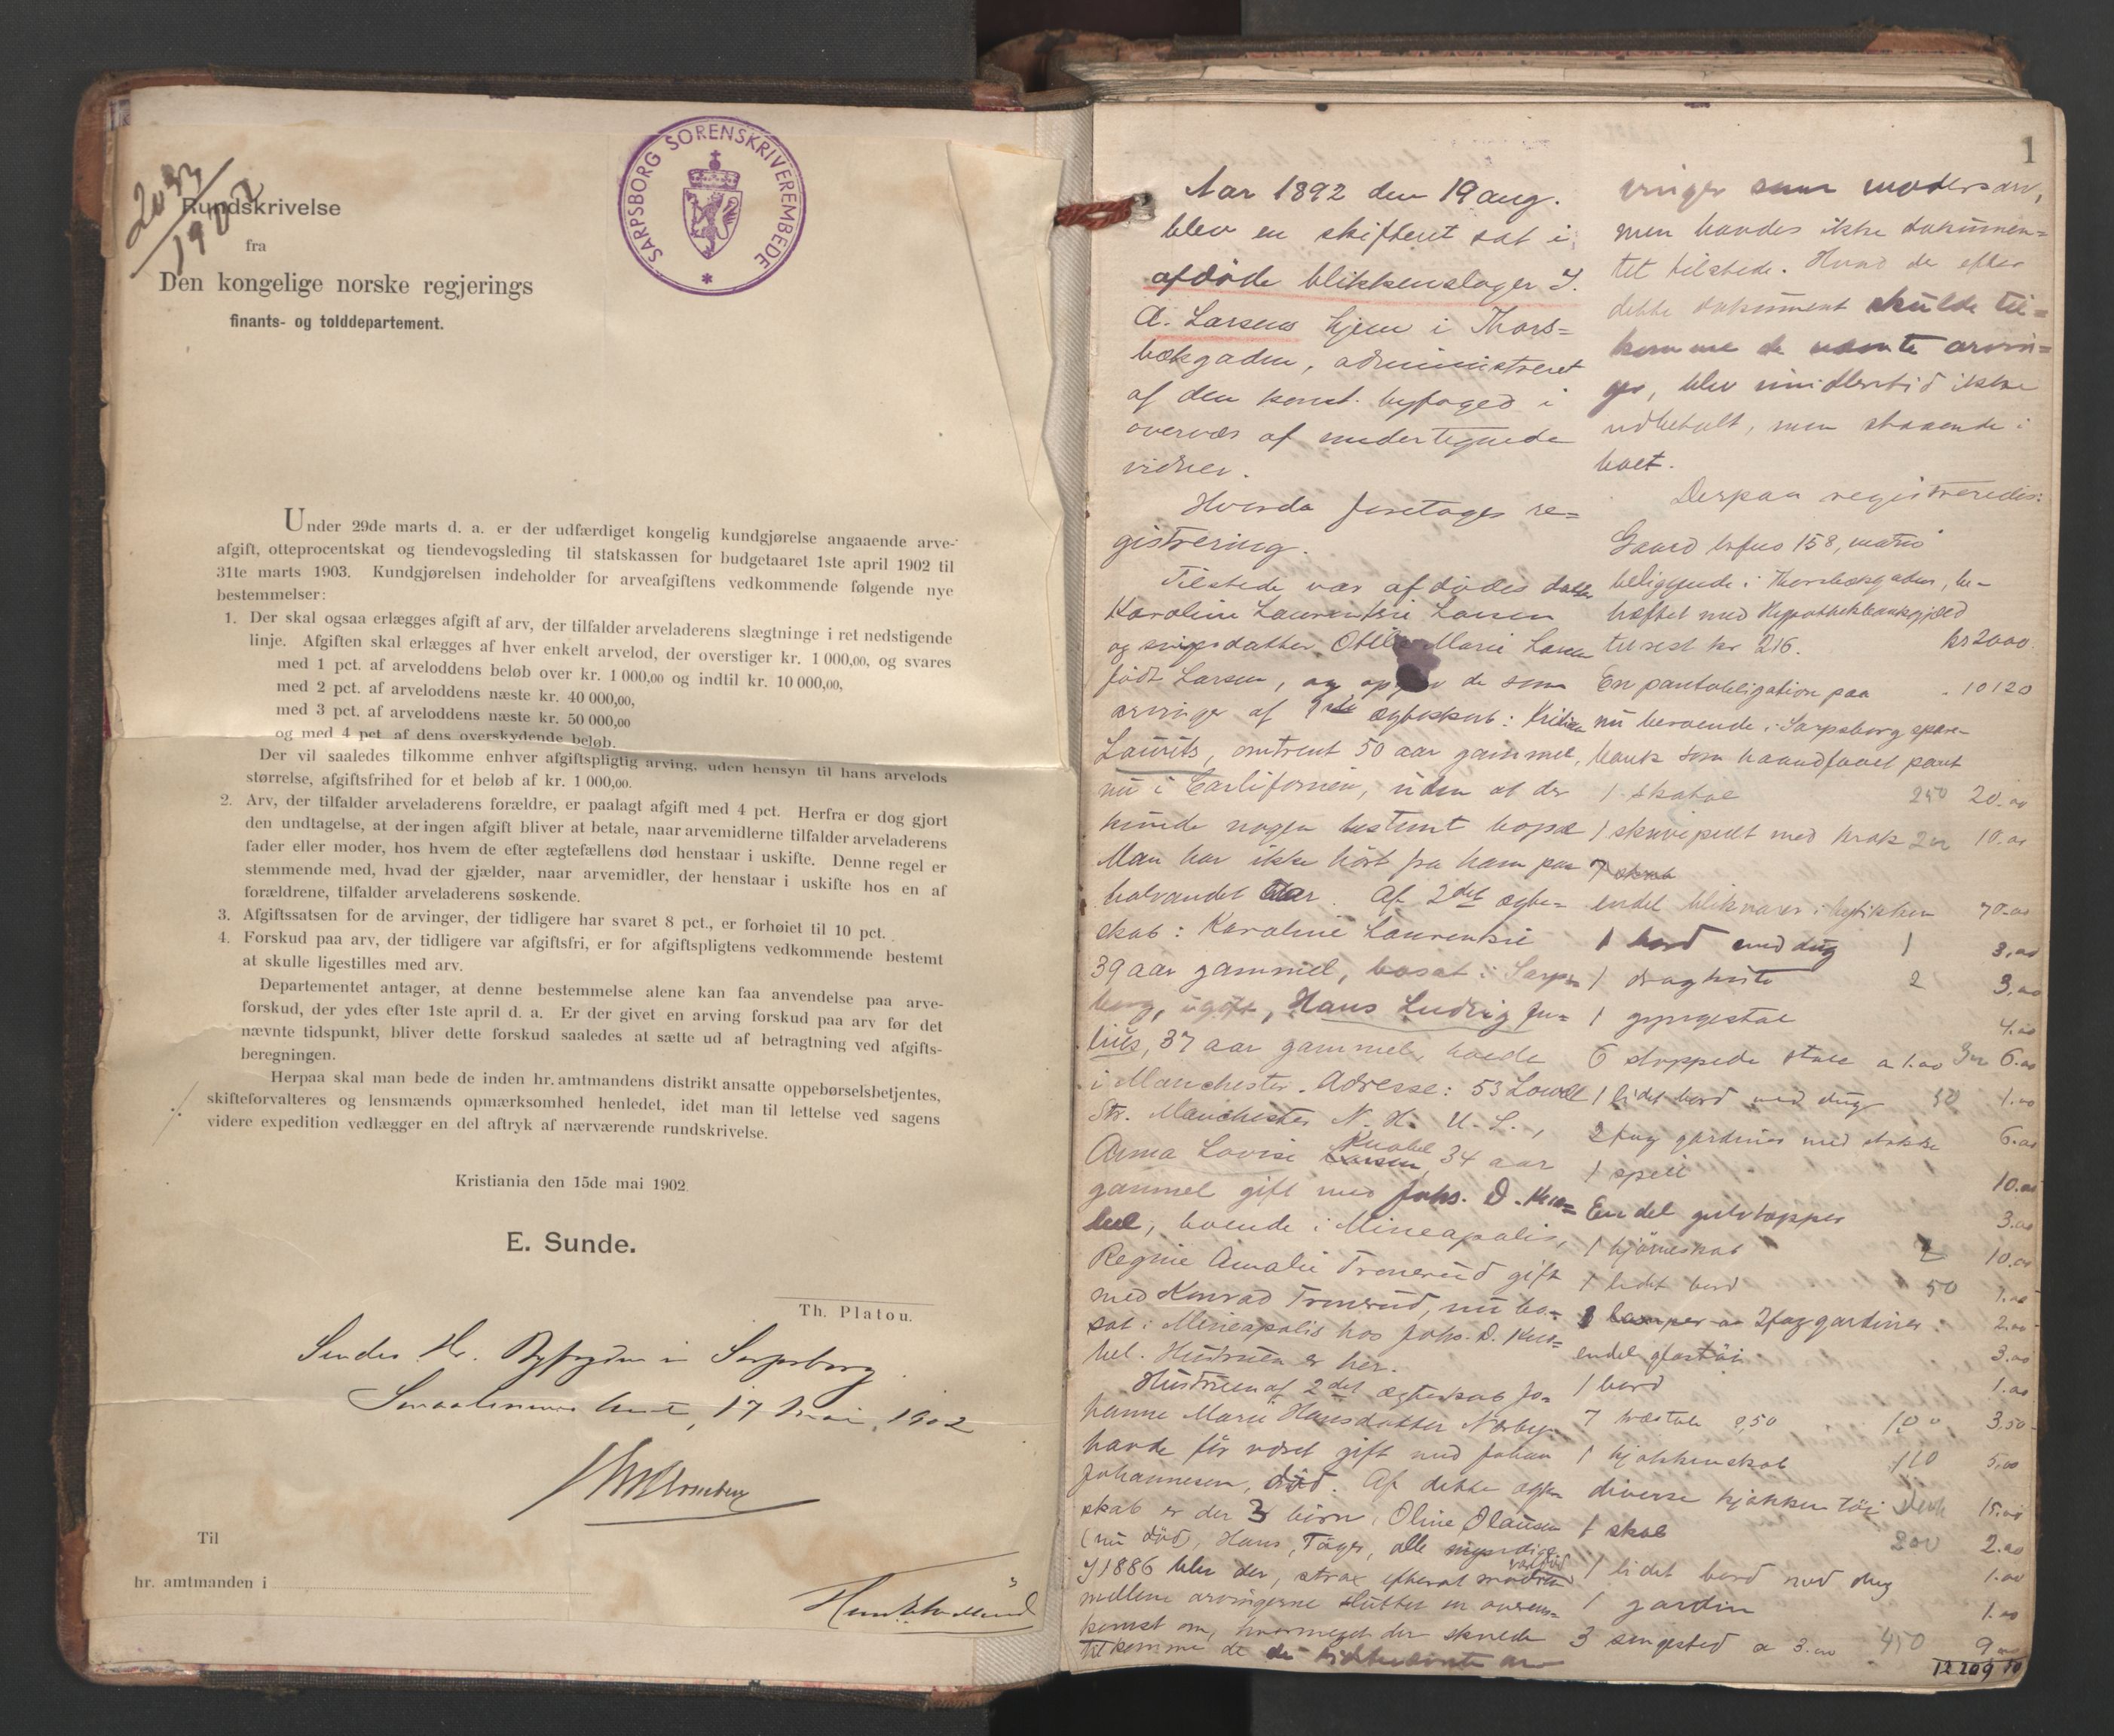 2033
1902
Rundskrivelse
fra
Den kongelige norske regjerings
finants- og tolddepartement.
SARPSBORG SORENSKRIVEREMBEDE
Under 29de marts d. a. er der udfærdiget kongelig kundgjørelse angaaende arve-
afgift, otteprocentskat og tiendevogsleding til statskassen for budgetaaret 1ste april 1902 til
31te marts 1903. Kundgjørelsen indeholder for arveafgiftens vedkommende følgende nye
bestemmelser:
1. Der skal ogsaa erlægges afgift af arv, der tilfalder arveladerens slægtninge i ret nedstigende
linje. Afgiften skal erlægges af hver enkelt arvelod, der overstiger kr. 1 000,00, og svares
med 1 pct. af arveloddens beløb over kr. 1 000,00 og indtil kr. 10 000,00,
med 2 pct. af arveloddens næste kr. 40 000,00,
med 3 pct. af arveloddens næste kr. 50 000,00
og med 4 pct. af dens overskydende beløb.
Der vil saaledes tilkomme enhver afgiftspligtig arving, uden hensyn til hans arvelods
størrelse, afgiftsfrihed for et beløb af kr. 1 000,00.
2. Arv, der tilfalder arveladerens forældre, er paalagt afgift med 4 pct. Herfra er dog gjort
den undtagelse, at der ingen afgift bliver at betale, naar arvemidlerne tilfalder arveladerens
fader eller moder, hos hvem de efter ægtefællens død henstaar i uskifte. Denne regel er
stemmende med, hvad der gjælder, naar arvemidler, der henstaar i uskifte hos en af
forældrene, tilfalder arveladerens søskende.
3. Afgiftssatsen for de arvinger, der tidligere har svaret 8 pct., er forhøiet til 10 pct.
4. Forskud paa arv, der tidligere var afgiftsfri, er for afgiftspligtens vedkommende bestemt
at skulle ligestilles med arv.
Departementet antager, at denne bestemmelse alene kan faa anvendelse paa arve-
forskud, der ydes efter 1ste april d. a. Er der givet en arving forskud paa arv før det
nævnte tidspunkt, bliver dette forskud saaledes at sætte ud af betragtning ved afgifts-
beregningen.
Herpaa skal man bede de inden hr. amtmandens distrikt ansatte oppebørselsbetjentes,
skifteforvalteres og lensmænds opmærksomhed henledet, idet man til lettelse ved sagens
videre expedition vedlægger en del aftryk af nærværende rundskrivelse.
Kristiania den 15de mai 1902.
E. Sunde.
Th. Platou.
Sendes Hr. Byfogden i Sarpsborg
Smaalenenes Amt, 17 Mai 1902
Til
hr. amtmanden i
1
Aar 1892 den 19 aug.
blev en skifteret sat i
afdøde blikkenslager J.
A. Larsens hjem i Thors=
bækgaden, administreret
af den konst. byfoged i
overvær af undertegnede
vidner.
Hvorda foretoges re=
gistrering.
Tilstede var afdødes datter
Karoline Laurentsie Larsen
og svigerdatter Marie Larsen
født Larsen, og de som
arvinger af 1ste ægteskab: Kristian
Laurits, omtrent 50 aar gammel,
nu i Carlifornien, uden at der
kunde nogen bestemt bopæl
Man har ikke hørt fra ham paa
halvandet Aar. Af 2det ægte=
skab: Karoline Laurentsie
39 aar gammel, bosat i Sarps=
borg, ugift, Hans Ludvig Ju=
lius, 37 aar gammel, boede
i Manchester. Adresse: 53 Lowell
Str. Manchester N. H. U. S.,
Anna Lovise Knabel Larsen, 34 aar
gammel gift med Johs. D. Kna=
bel, boende i Mineapolis,
Regine Amalie Tronerud gift
med Konrad Tronerud, nu bo=
sat i Mineapolis hos Johs. D. Kna=
bel. Hustruen er her.
Hustruen af 2det ægteskab Jo=
hanne Marie Hansdatter Nærby
havde før været gift med Johan
Johannesen, død. Af dette ægte
skab er der 3 børn, Oline Olausen
(nu død), Hans, Tøger, alle myndige
I 1886 blev der, strax efterat moderen var død
mellem arvingerne sluttet en overens=
komst om, hvormeget der skulde
tilkomme de
vinger som mødersarv,
men havdes ikke dokumen=
tet tilstede. Hvad der efter
dette dokument skulde til=
komme de nævnte arvin=
ger, blev imidlertid ikke
udbetalt, men staaende i
boet.
Derpaa registreredes:
Gaard brfno 158, matrno
beliggende i Thorsbækgaden, be=
hæftet med Hypothekbankgjæld
til rest kr 216. kr 2000.
En pantobligation paa 10120
nu beroende i Sarpsborg spare=
bank som haandfaaet pant
1 skatol 250 20.00
1 skrivepult med krak 200 10.00
7 skab
endel blikvarer i butikken 70.00
1 bord med dug 1 3.00
1 dragkiste 2 3.00
1 gyngestol 4.00
6 stoppede stole a 1.00 6.00
1 lidet bord med dug 50 1.00
2 fag gardiner med stokke 6.00
1 speil 10.00
En del gulvtæpper 3.00
1 hjørneskab 2 10.00
1 lidet bord 50 1.00
2 fag gardiner 2.00
endel glastøi 3.00
1 bord 1.00
7 træstole 0,50 3.50
1 kjøkkenskab 110 5.00
diverse kjøkkentøi 15.00
1 skab 200 2.00
1 lidet bord med dug 1.00
1 gardin 1.00
3 sengested a 3.00 450 9.00
12 209 50